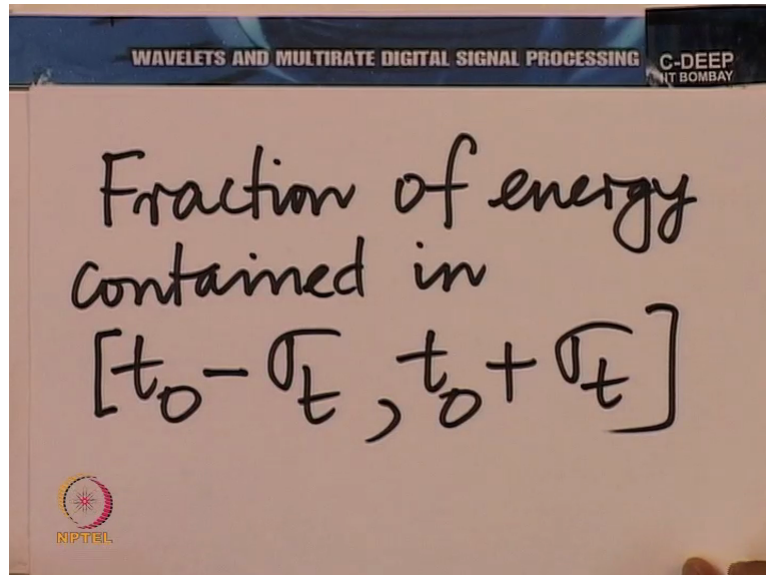 WAVELETS AND MULTIRATE DIGITAL SIGNAL PROCESSING
C-DEEP
IIT BOMBAY
Fraction of energy
contained in
[t₀ - σₜ, t₀ + σₜ]
NPTEL